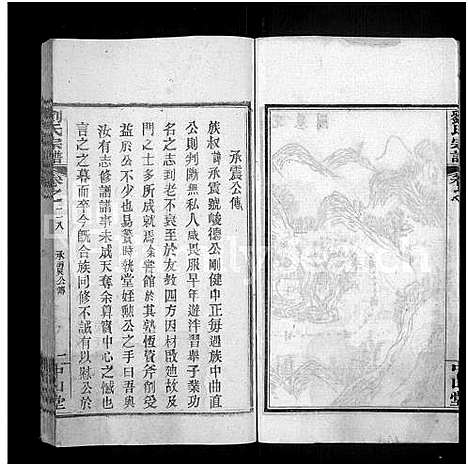 劉氏宗譜
承震公傳
族叔諱承震號峻德公剛健中正每遇族中曲直
公則判斷無私人咸畏服早年遊泮習舉子業功
名之志到老不衰至於友教四方因材而廸故及
門之士多所成就焉余嘗館於其塾恆資斧劑受
益於公者不少也易簀時執堂姪勲公之手曰吾與
汝有志修譜譜事未成天奪余算實中心之憾也
言之之慕而卒今旣合族同修不誠有以慰公於
劉氏宗譜
卷之二八
承震公傳
一
中山堂